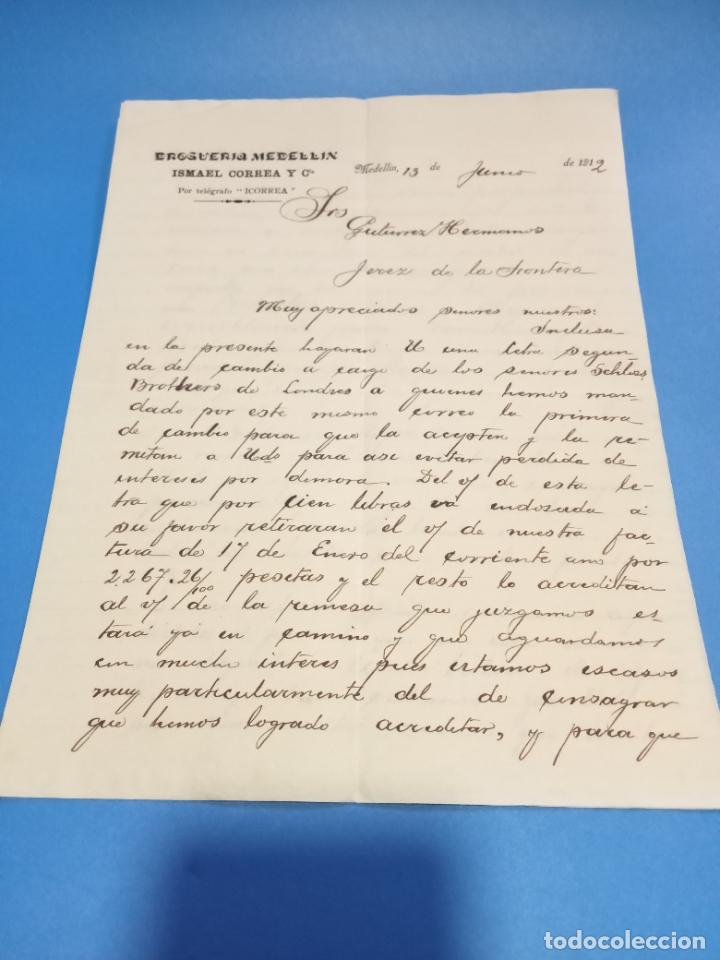 DROGUERIA MEDELLIN
ISMAEL CORREA Y Cª
Por telégrafo "ICORREA"
Medellin, 13 de Junio de 1912
Srs
Gutierrez Hermanos
Jerez de la Frontera
Muy apreciados señores nuestros:
Inclusa
en la presente hayaran U una letra segun-
da de cambio a cargo de los señores Schloss
Brothers de Londres a quienes hemos man-
dado por este mismo correo la primera
de cambio para que la acepten y la re-
mitan a Uds para asi evitar perdida de
intereses por demora. Del v/ de esta le-
tra que por cien libras vá endosada á
su favor retiraran el v/ de nuestra fac-
tura de 17 de Enero del corriente ano por
2.267.26/100 pesetas y el resto lo acreditan
al v/ de la remesa que juzgamos es-
tará yá en camino y que aguardamos
con mucho interes pues estamos escasos
muy particularmente del de Consagrar
que hemos logrado acreditar, y para que
todocoleccion
todocoleccion.net